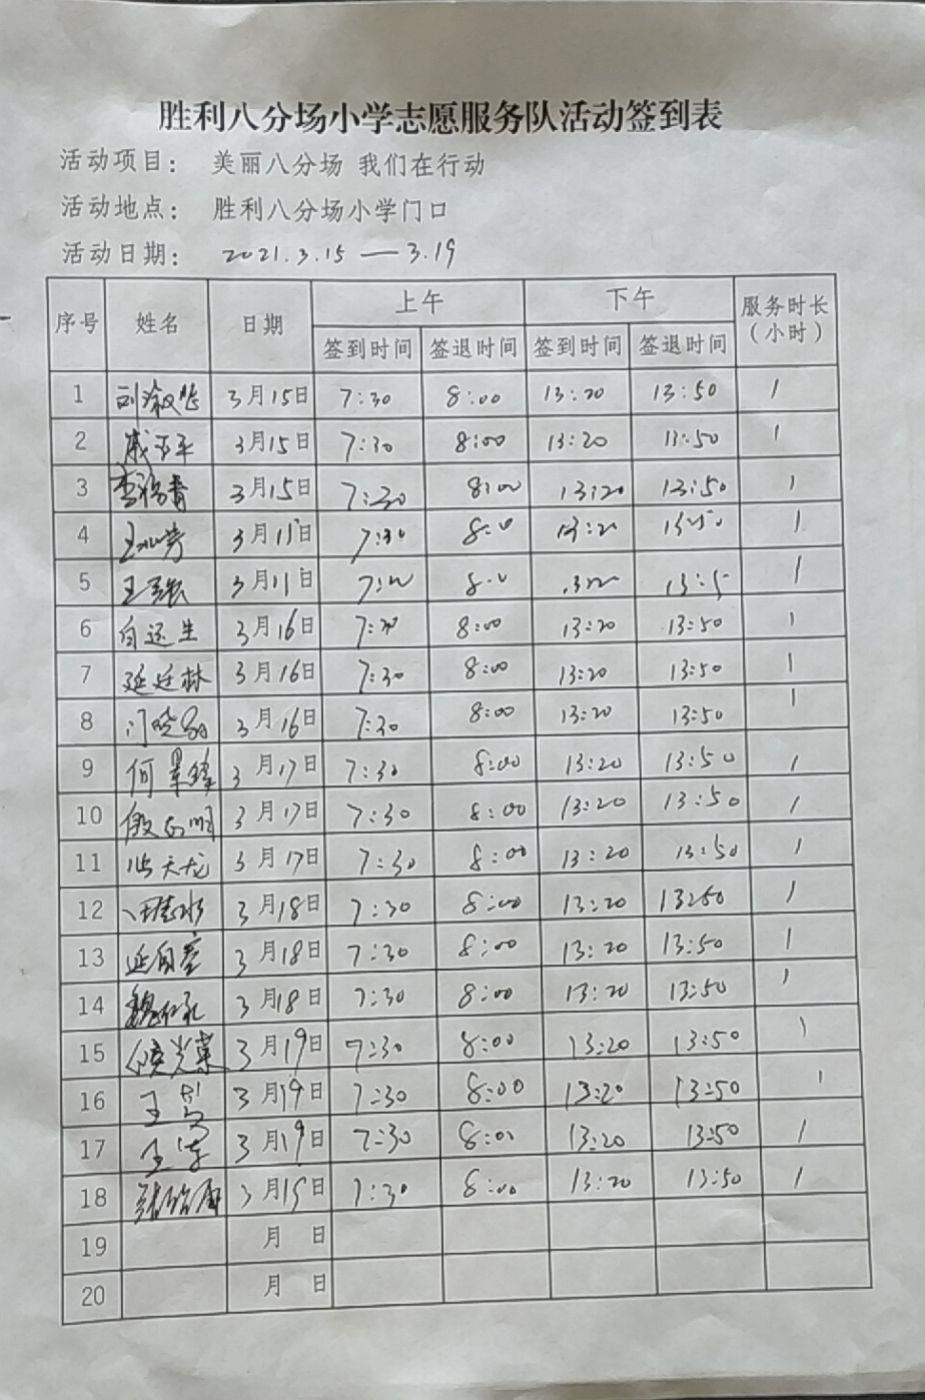 胜利八分场小学志愿服务队活动签到表
活动项目： 美丽八分场 我们在行动
活动地点： 胜利八分场小学门口
活动日期： 2021.3.15 — 3.19
序号 姓名 日期 上午 下午 服务时长（小时）
签到时间 签退时间 签到时间 签退时间
1 3月15日 7:30 8:00 13:20 13:50 1
2 3月15日 7:30 8:00 13:20 13:50 1
3 3月15日 7:30 8:00 13:20 13:50 1
4 王 3月 日 7:30 13:50 1
5 王 3月 日 1
6 白运生 3月16日 7:30 8:00 13:20 13:50 1
7 延廷林 3月16日 7:30 8:00 13:20 13:50 1
8 3月16日 7:30 8:00 13:20 13:50 1
9 何 3月17日 7:30 8:00 13:20 13:50 1
10 3月17日 7:30 8:00 13:20 13:50 1
11 天龙 3月17日 7:30 8:00 13:20 13:50 1
12 3月18日 7:30 8:00 13:20 13:50 1
13 延 3月18日 7:30 8:00 13:20 13:50 1
14 魏 3月18日 7:30 8:00 13:20 13:50 1
15 3月19日 7:30 8:00 13:20 13:50 1
16 王 3月19日 7:30 8:00 13:20 13:50 1
17 王 3月19日 7:30 8:00 13:20 13:50 1
18 张 3月19日 7:30 8:00 13:20 13:50 1
19 月 日
20 月 日